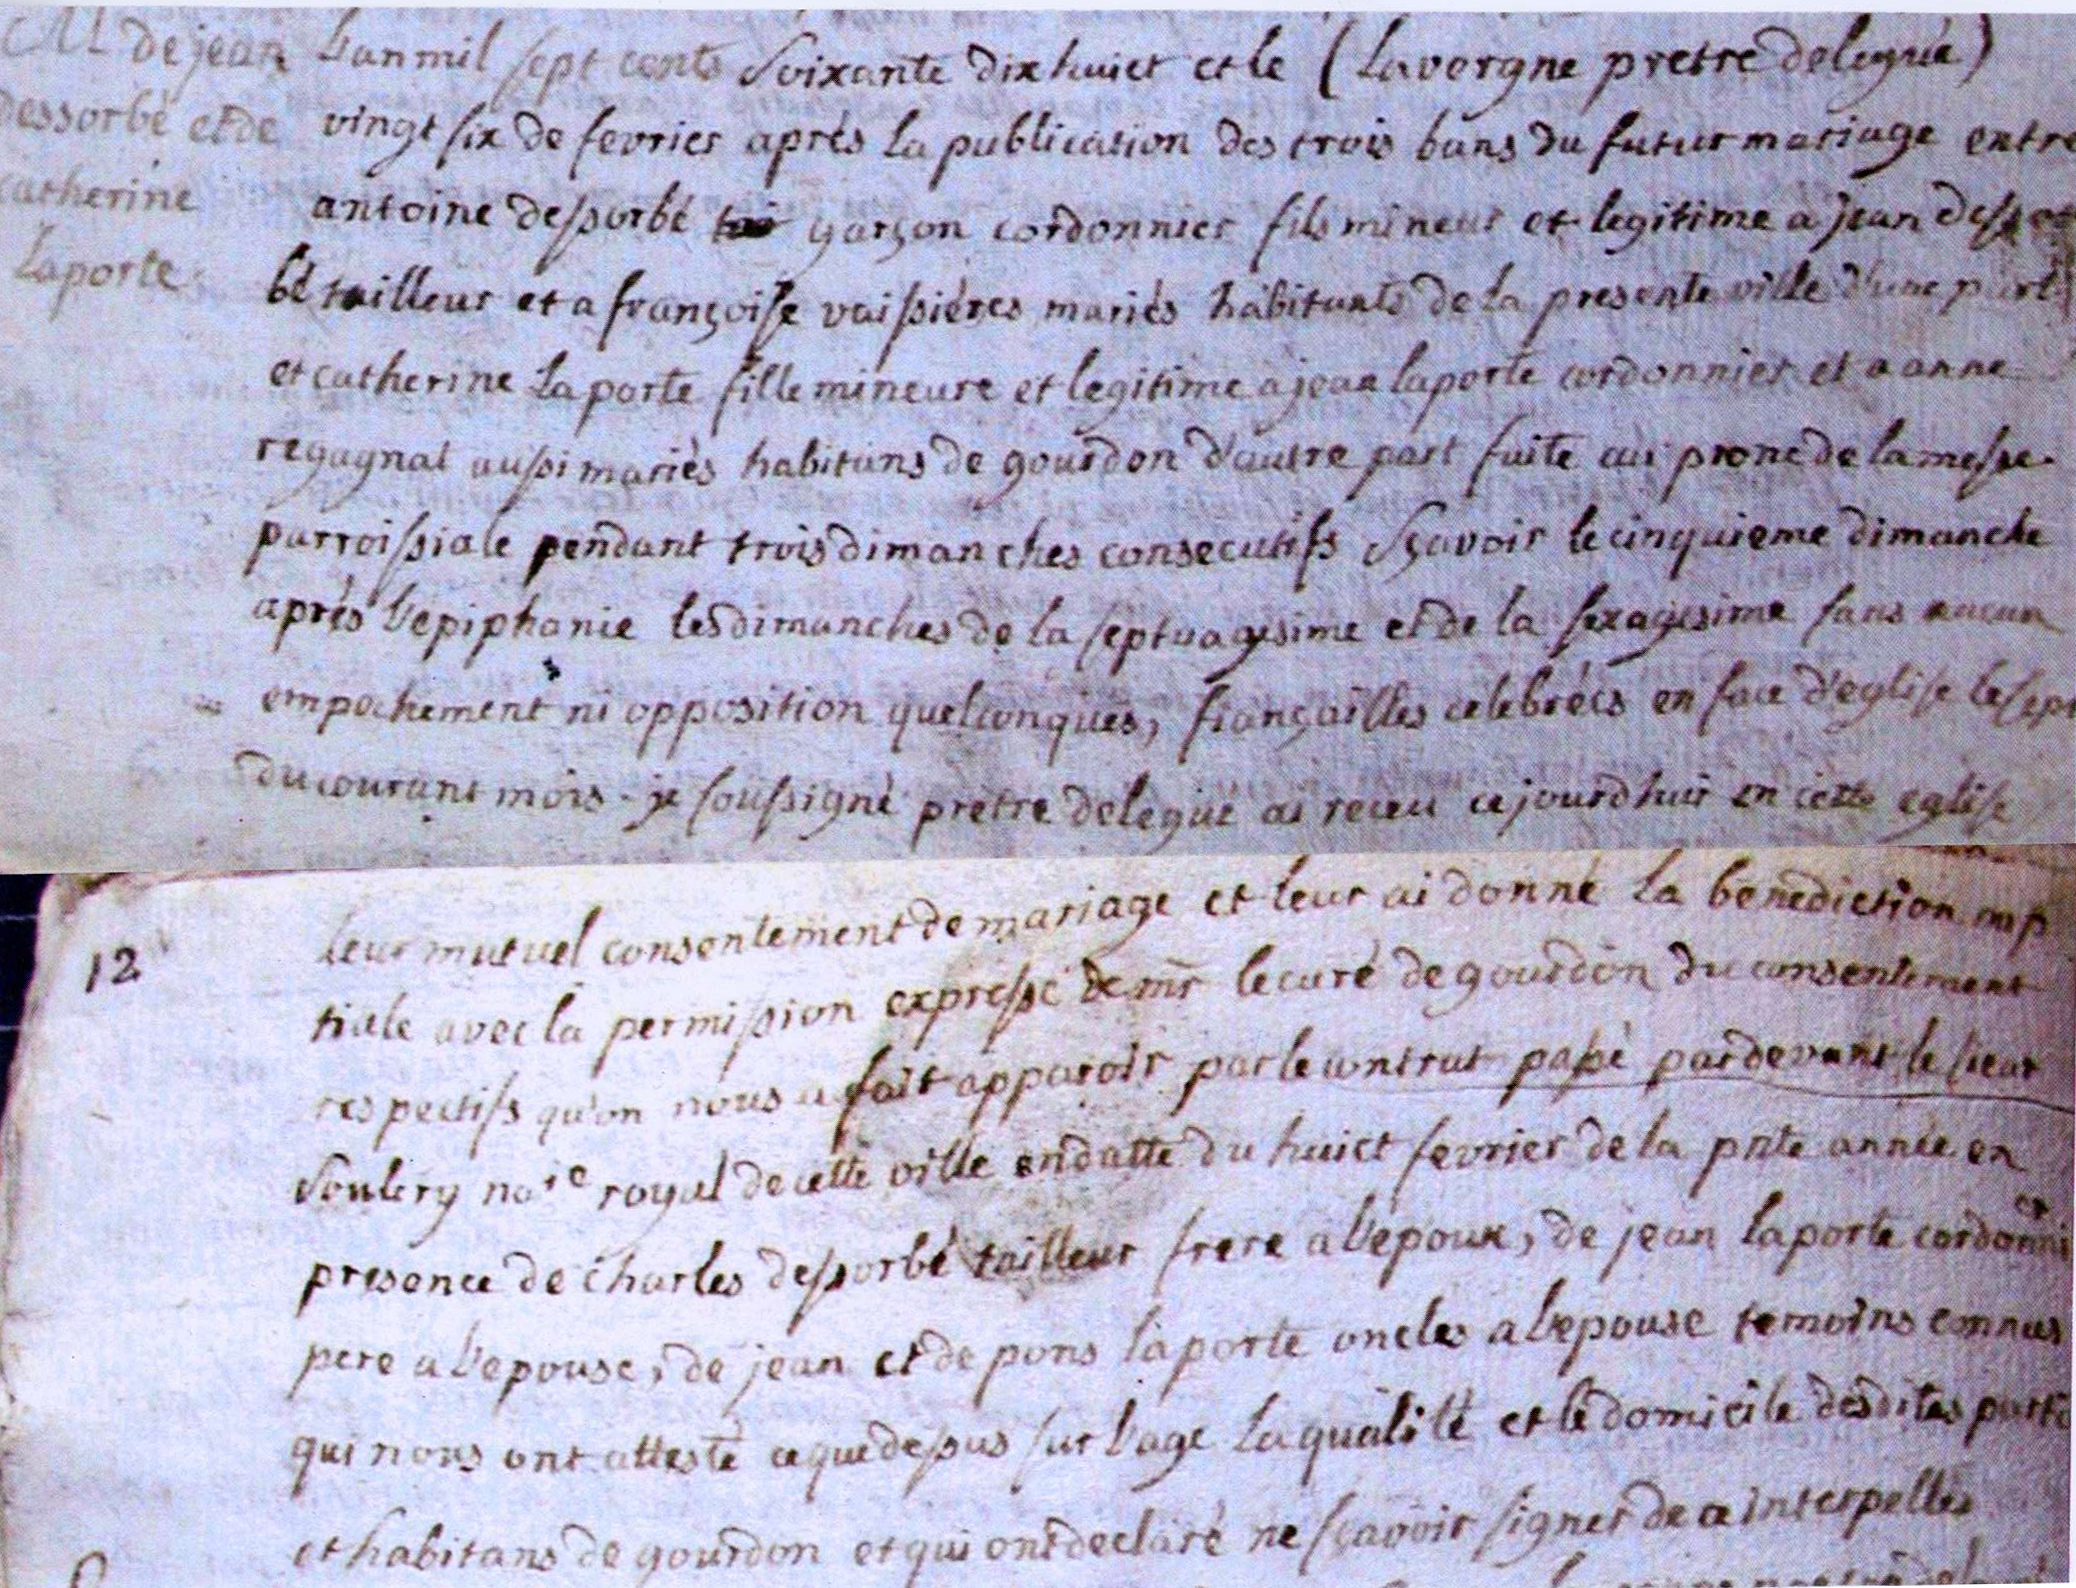 M de jean
dessorbé et de
catherine
Laporte
L'an mil sept cents soixante dix huict et le (Lavergne pretre delegué)
vingt six de fevrier aprés la publication des trois bans du futur mariage entre
antoine dessorbé garçon cordonnier fils mineur et legitime a jean desso
bé tailleur et a françoise vaissiéres mariés habitants de la presente ville d'une part
et catherine Laporte fille mineure et legitime a jean laporte cordonnier et a anne
regagnal aussi mariés habitans de gourdon d'autre part faite au prone de la messe
parroissiale pendant trois dimanches consecutifs sçavoir le cinquieme dimanche
aprés l'epiphanie les dimanches de la septuagesime et de la sexagesime sans aucun
empechement ni opposition quelconques, fiançailles celebrées en face d'eglise le sept
du courant mois - je soussigné pretre delegué ai receu ce jourd'hui en cette eglise
12
leur mutuel consentement de mariage et leur ai donné la benediction nup
tiale avec la permission expresse de mr le curé de gourdon du consentement
respectifs qu'on nous a fait apparoir par le contrat passé pardevant le sieur
Soulery nore royal de cette ville en datte du huict fevrier de la pnte année en
presence de charles dessorbé tailleur frere a l'epoux, de jean laporte cordonnier
pere a l'epouse, de jean et de pons laporte oncles a l'epouse temoins connus
qui nous ont attesté ce que dessus sur l'age la qualité et le domicile desdites partie
et habitans de gourdon et qui ont declaré ne sçavoir signer de ce interpellés